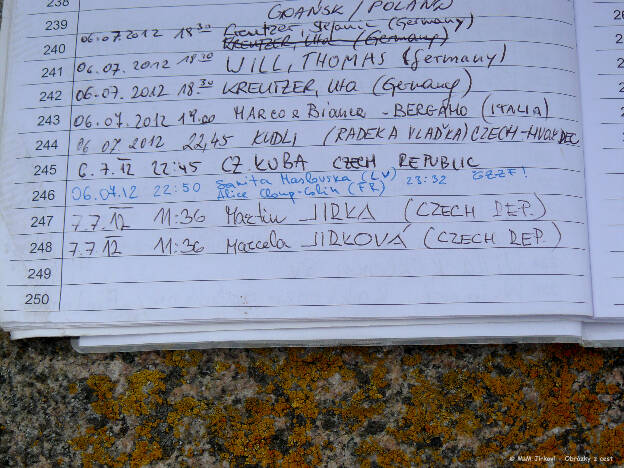 238 GDAŃSK / POLAND
239
240 06.07.2012 18 30 Kreutzer, Stefanie (Germany)
KREUTZER, Uta (Germany)
241 06.07.2012 18 30 WILL, THOMAS (Germany)
242 06.07.2012 18 30 KREUTZER, Uta (Germany)
243 06.07.2012 19.00 MARCO e Bianca - BERGAMO (ITALIA)
244 06 07 2012 22,45 KUDLI (RADEKA VLAĎKA) CZECH-HVOZDEC
245 6.7.12 22:45 CZ KUBA CZECH REPUBLIC
246 06.07.12 22:50 Sanita Maslovska (LV) 23:32
Alice (FR)
247 7.7.12 11:36 Martin JIRKA (CZECH REP.)
248 7.7.12 11:36 Marcela JIRKOVÁ (CZECH REP.)
249
250
© M&M Jirkovi - Obrázky z cest